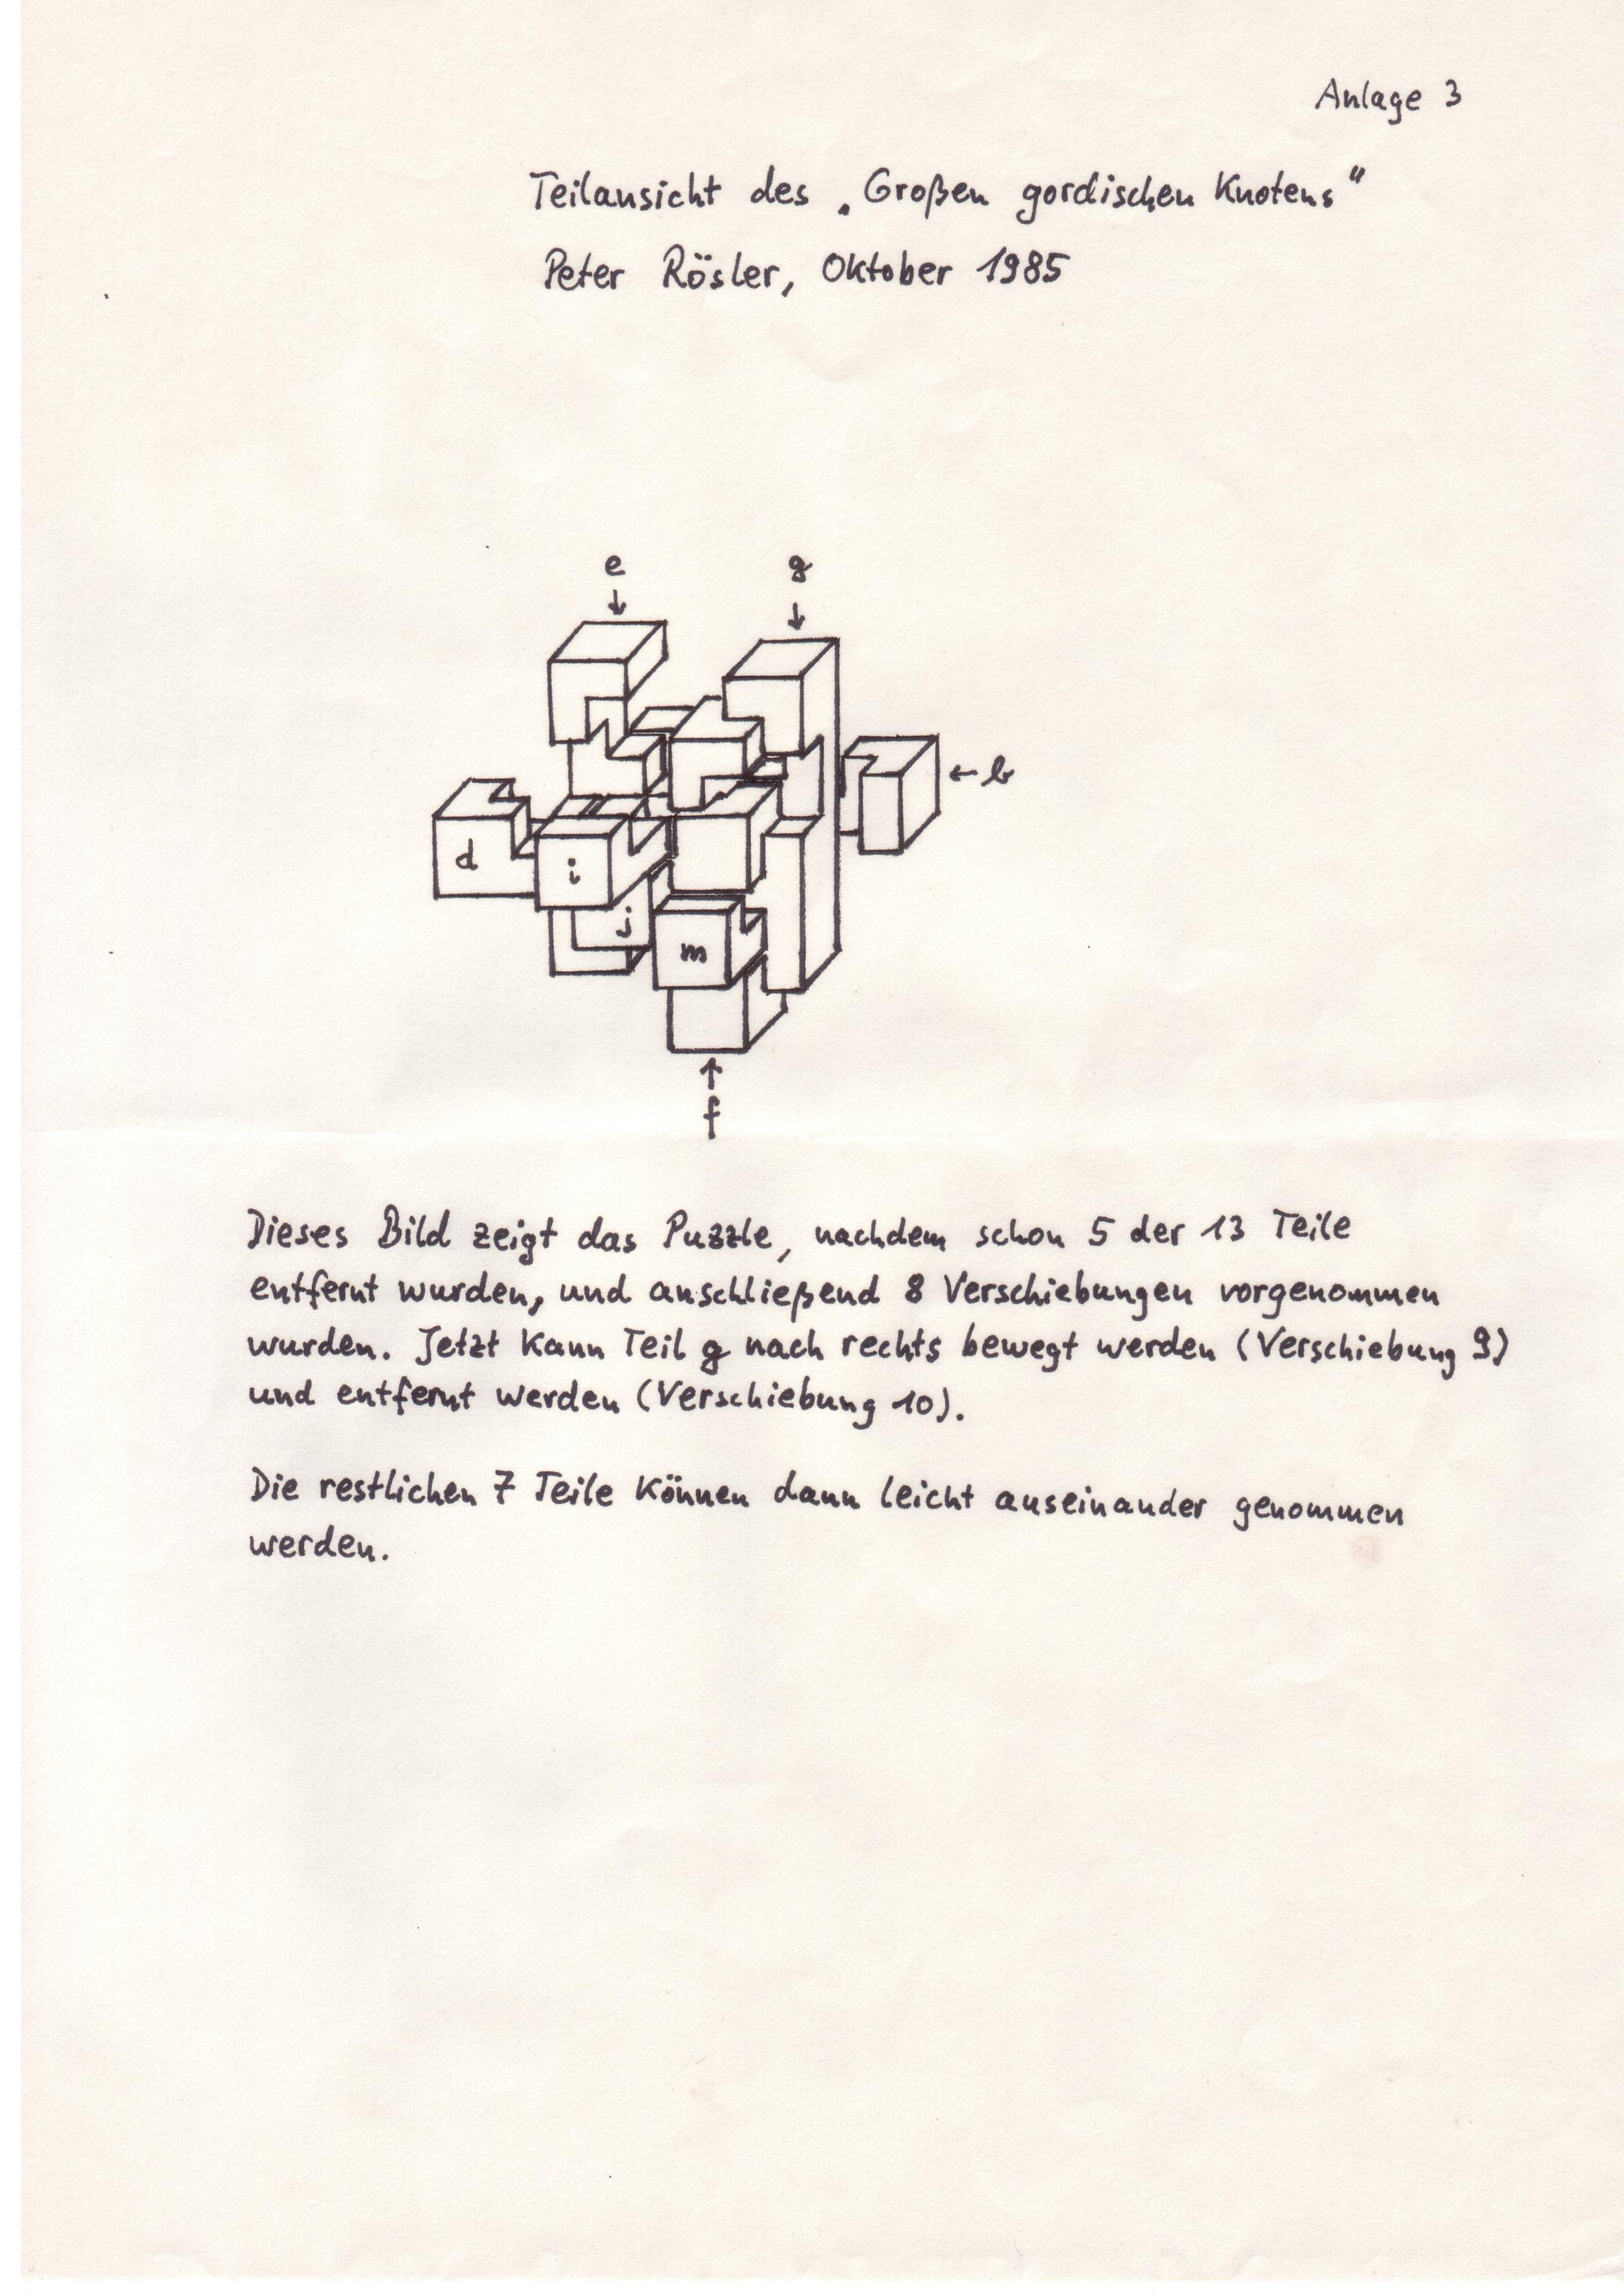 Anlage 3
Teilansicht des „Großen gordischen Knotens"
Peter Rösler, Oktober 1985
e g
↓ ↓
← b
d i
j
m
↑
f
Dieses Bild zeigt das Puzzle, nachdem schon 5 der 13 Teile
entfernt wurden, und anschließend 8 Verschiebungen vorgenommen
wurden. Jetzt kann Teil g nach rechts bewegt werden (Verschiebung 9)
und entfernt werden (Verschiebung 10).
Die restlichen 7 Teile können dann leicht auseinander genommen
werden.